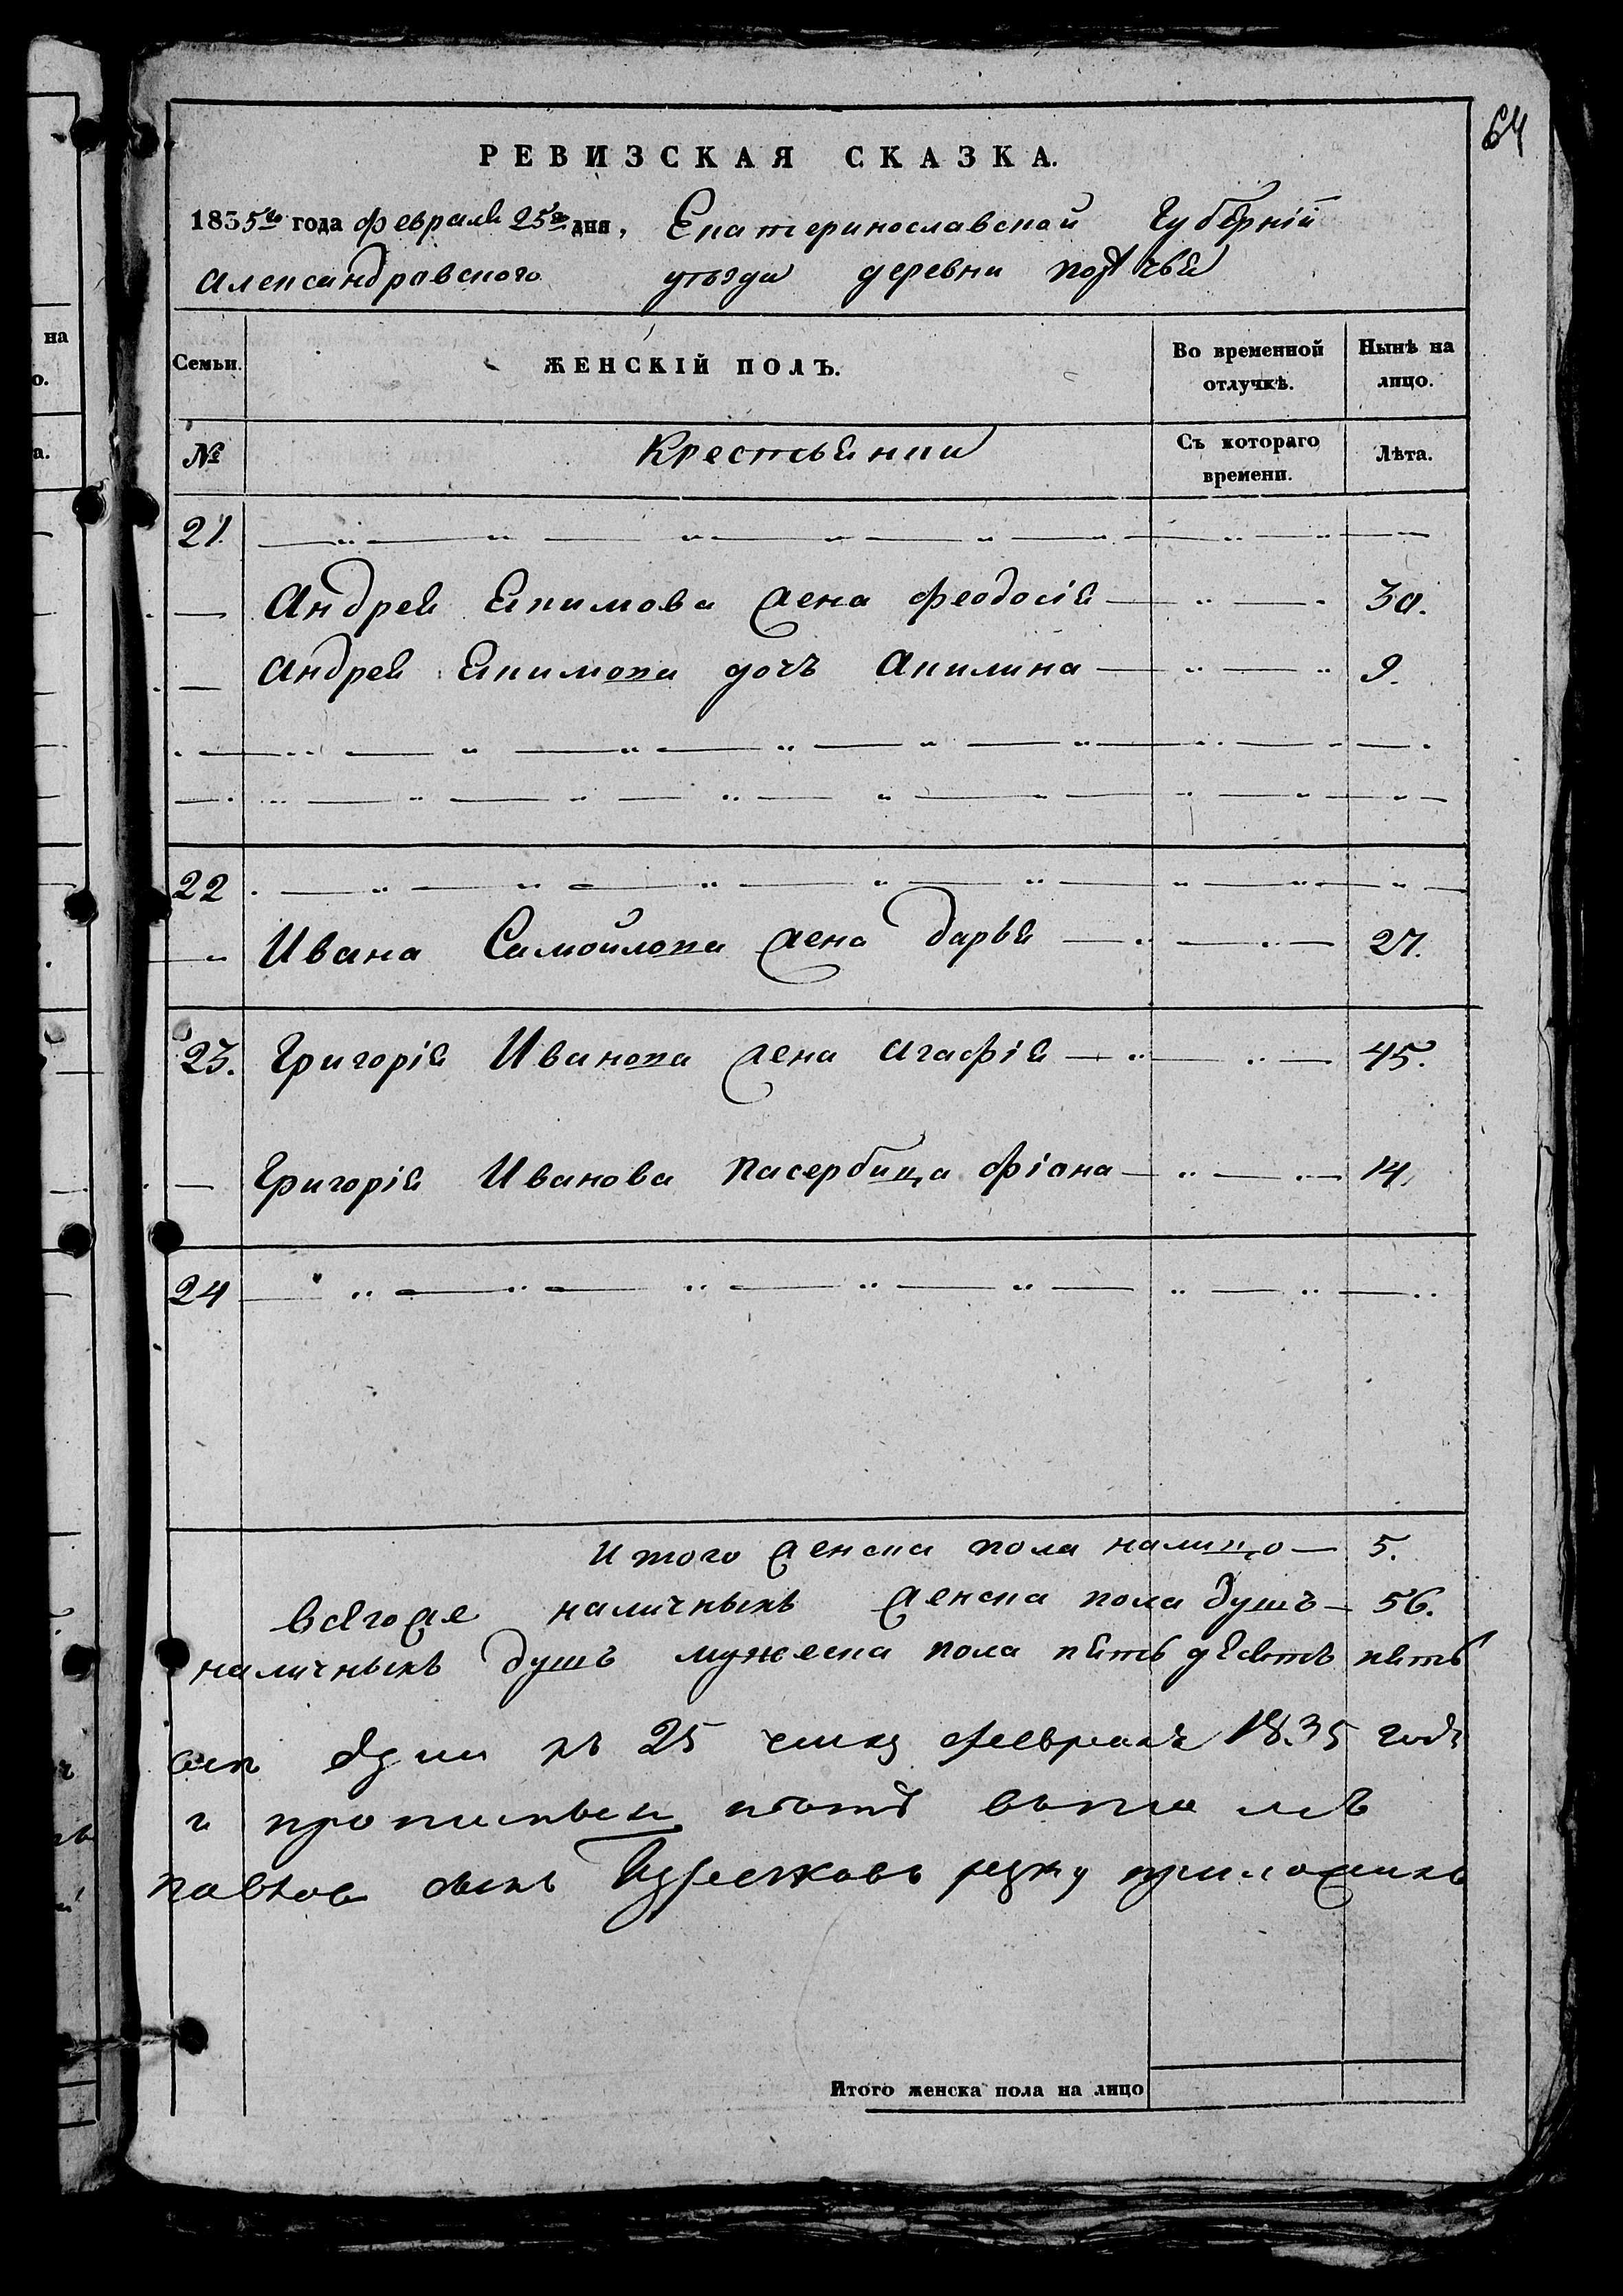 64
РЕВИЗСКАЯ СКАЗКА.
1835го года февраля 25го дня, Екатеринославской Губерній
Александравского уѣзда деревни
Семьи. ЖЕНСКІЙ ПОЛЪ. Во временной отлучкѣ. Нынѣ на лицо.
№ Крестьянки Съ котораго времени. Лѣта.
21.
Андрея Якимова жена Феодосія 30.
Андрея Якимова дочъ Акилина 9.
22
Ивана Самойлова жена дарья 27.
23. Григорія Иванова жена агафія 45.
Григорія Иванова пасербица Фіона 14.
24
Итого женска пола налицо 5.
всягоже наличныхъ женска пола душъ 56.
наличныхъ душъ мужеска пола пять
къ 25 февраля 1835
и
руку приложилъ
Итого женска пола на лицо
на
о.
а.